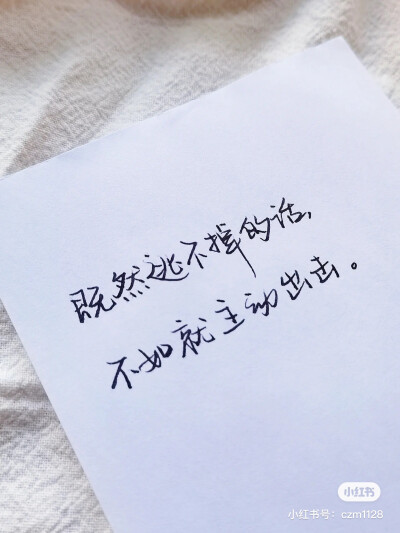 既然逃不掉的话、
不如就主动出击。
小红书
小红书号：czm1128